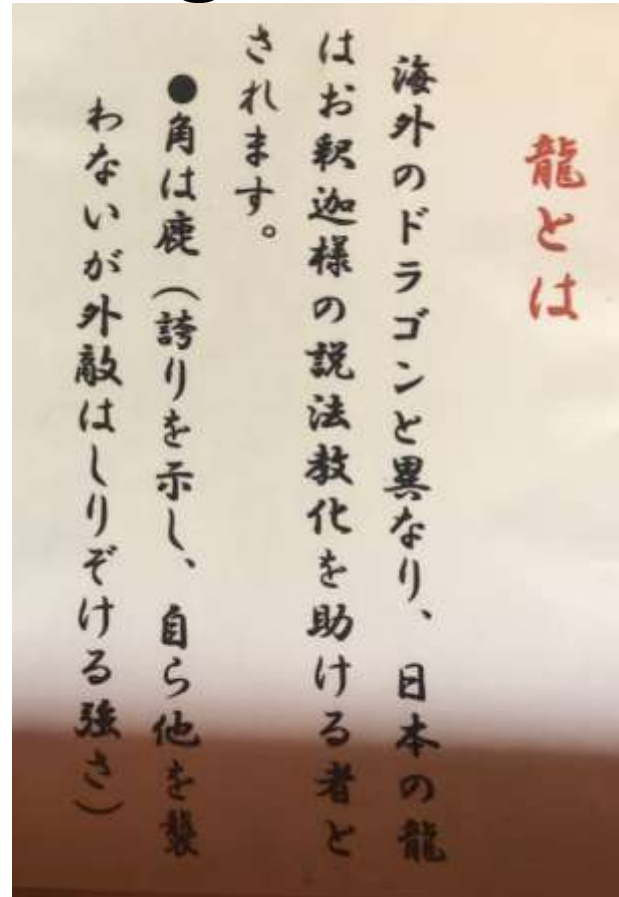 龍とは
海外のドラゴンと異なり、日本の龍
はお釈迦様の説法教化を助ける者と
されます。
●角は鹿（誇りを示し、自ら他を襲
わないが外敵はしりぞける強さ）